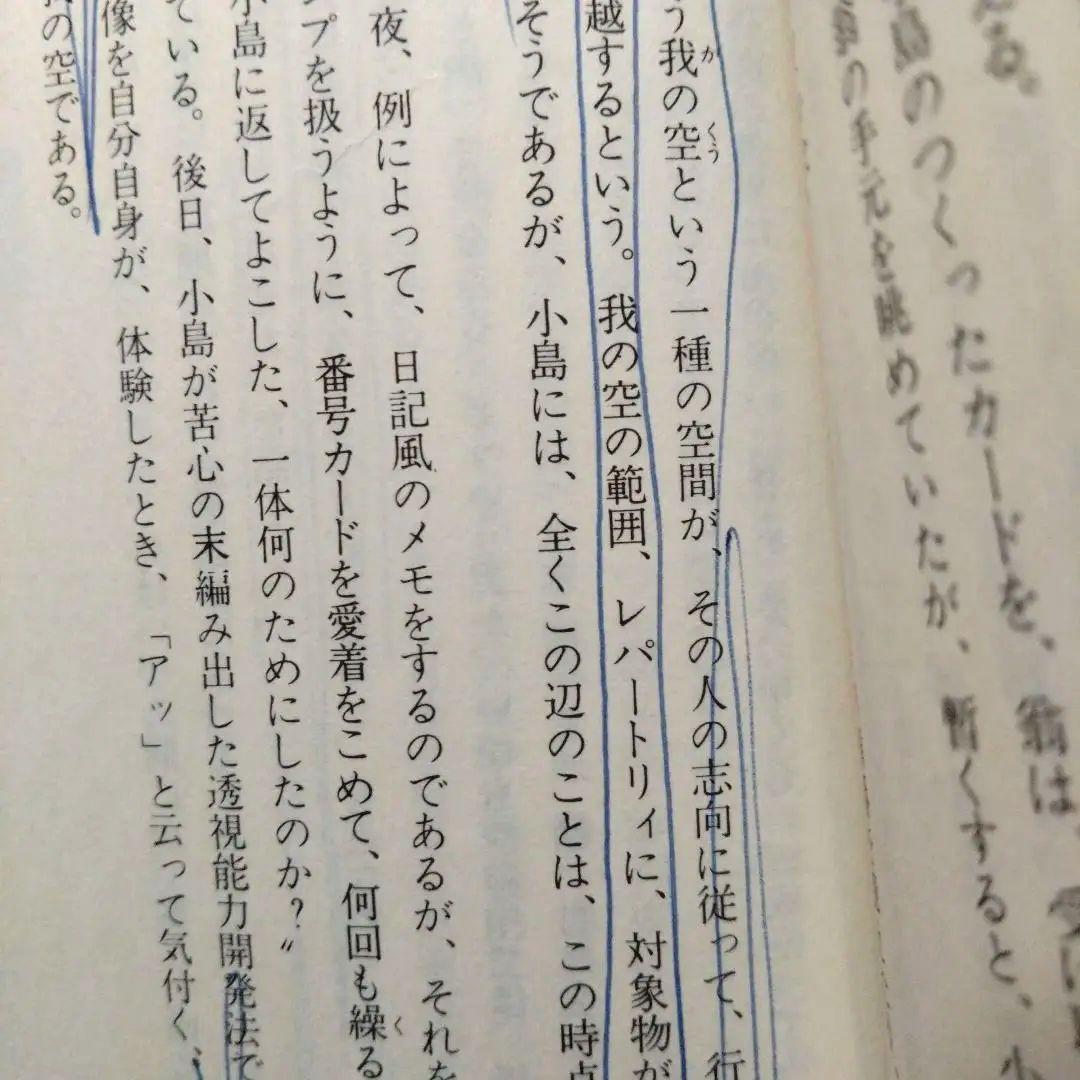 える。
島のつくったカードを、翁は、受け
の手元を眺めていたが、暫くすると、小
う我の空という一種の空間が、その人の志向に従って、行
越するという。我の空の範囲、レパートリィに、対象物が
そうであるが、小島には、全くこの辺のことは、この時点
夜、例によって、日記風のメモをするのであるが、それを
ンプを扱うように、番号カードを愛着をこめて、何回も繰る
小島に返してよこした、一体何のためにしたのか?〟
ている。後日、小島が苦心の末編み出した透視能力開発法で
像を自分自身が、体験したとき、「アッ」と云って気付く、
我の空である。